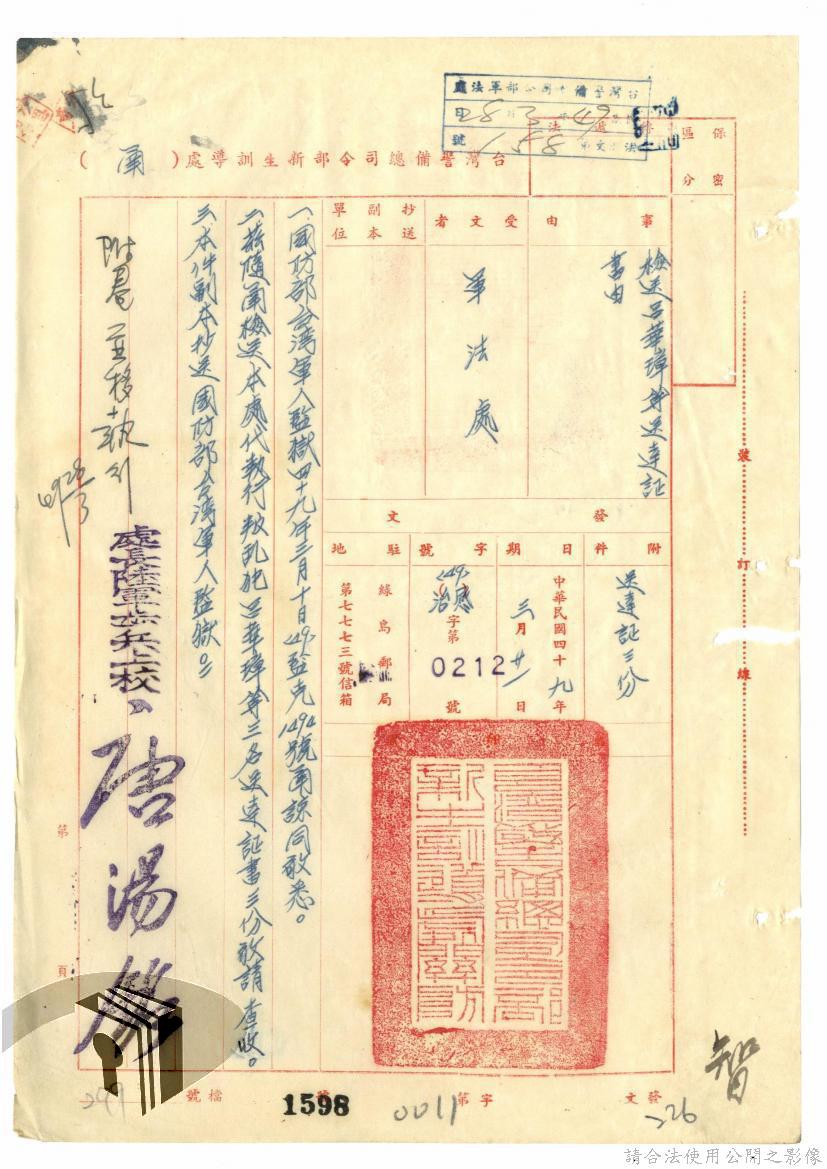 台灣警備總司令部軍法處
台灣警備總司令部新生訓導處（函）
保密
區分
事由
檢送呂華璋等送達証
書由
受文者
軍法處
抄送
副本
單位
發文
附件
送達証三份
日期
中華民國四十九年
三月廿一日
字號
(49)治惠字第0212號
駐地
綠島郵局
第七七七三號信箱
一、國防部台灣軍人監獄四十九年三月十日(49)監克1494號函諒同敬悉。
二、茲隨函檢送本處代執行叛乱犯呂華璋等三名送達証書三份敬請查收。
三、本件副本抄送國防部台灣軍人監獄。
處長陸軍步兵上校
唐湯銘
附卷並移執行
裝訂線
第頁
檔號
1598
0011
字第
發文
226
249
智
請合法使用公開之影像